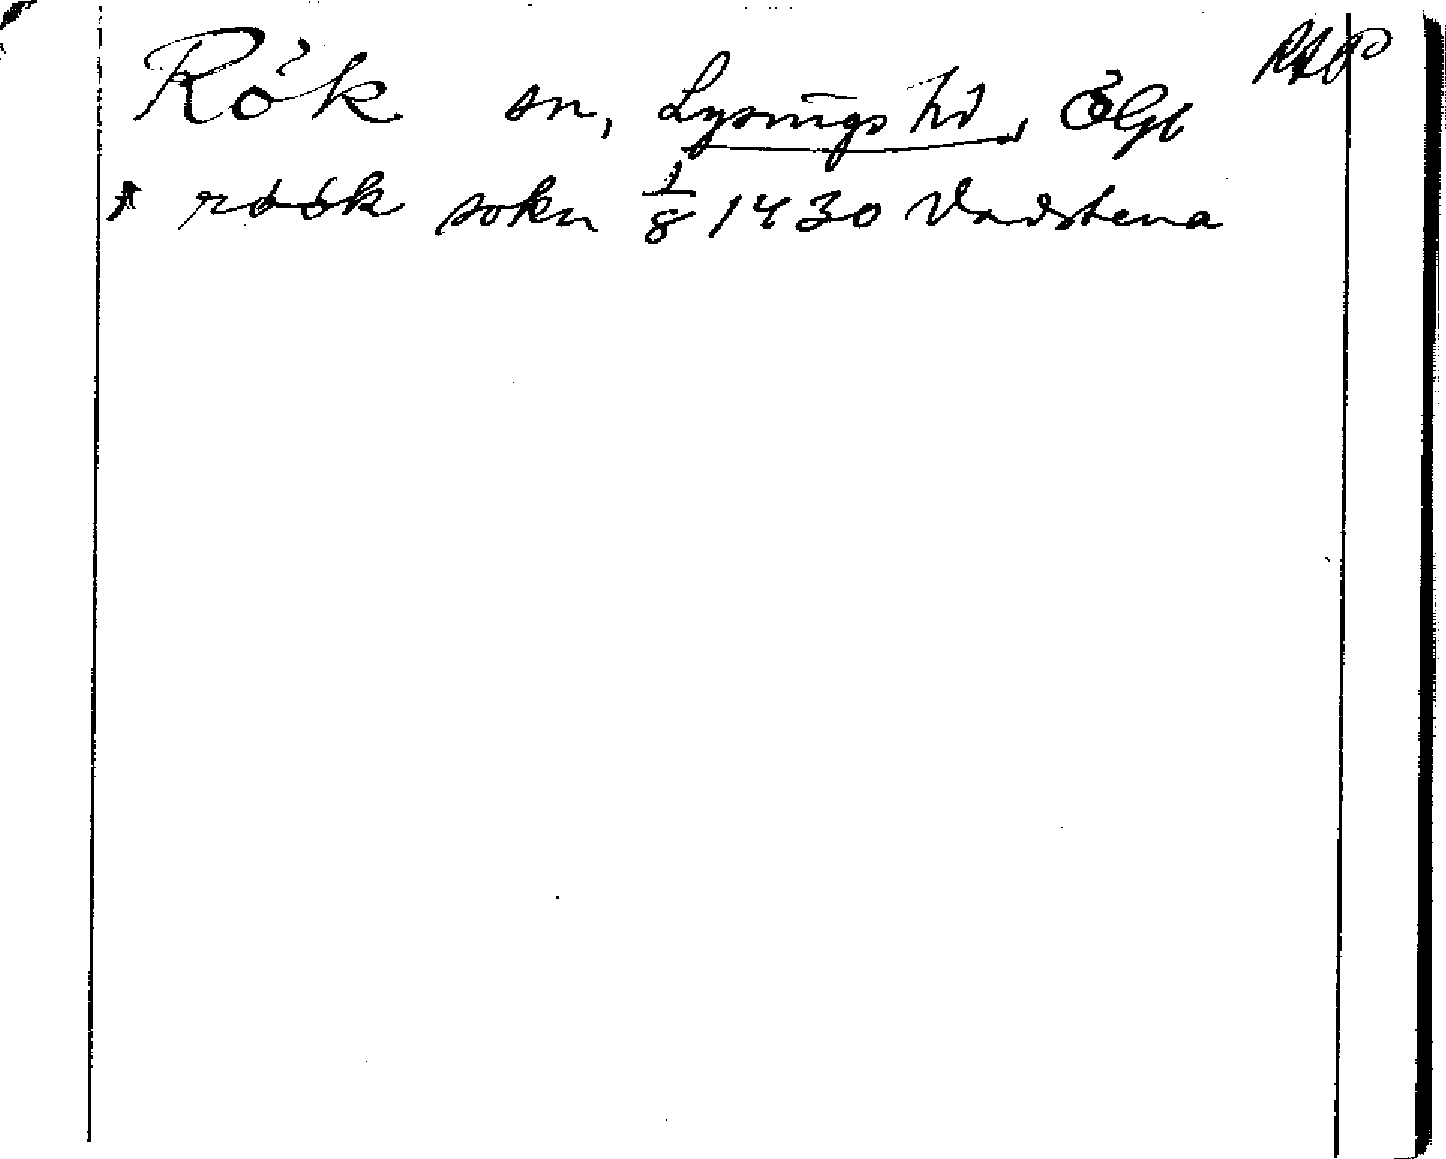 Rök sn, Lysings hd, ÖGtl RAP
* røøk sokn 1/8 1430 Vadstena